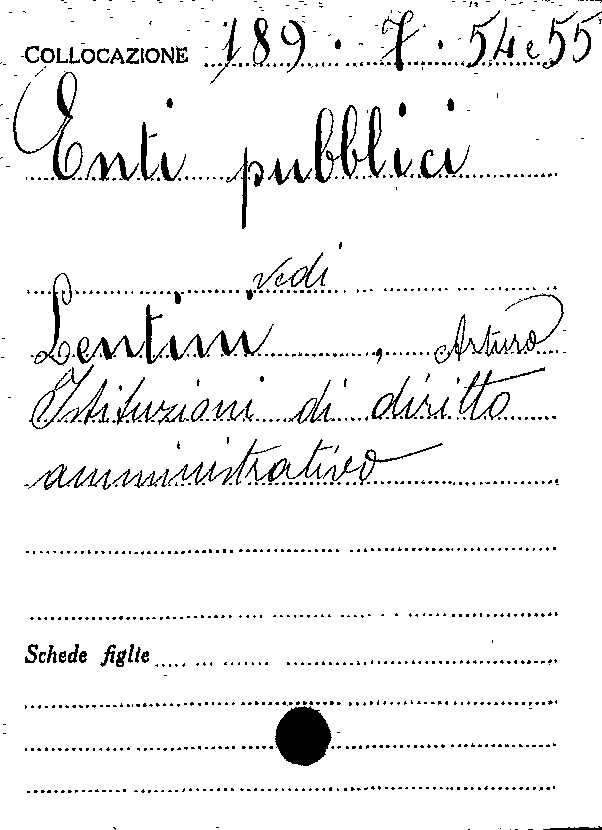 COLLOCAZIONE 189 . 7 . 54 e 55
Enti pubblici
vedi
Lentini , Arturo
Istituzioni di diritto
amministrativo
Schede figlie